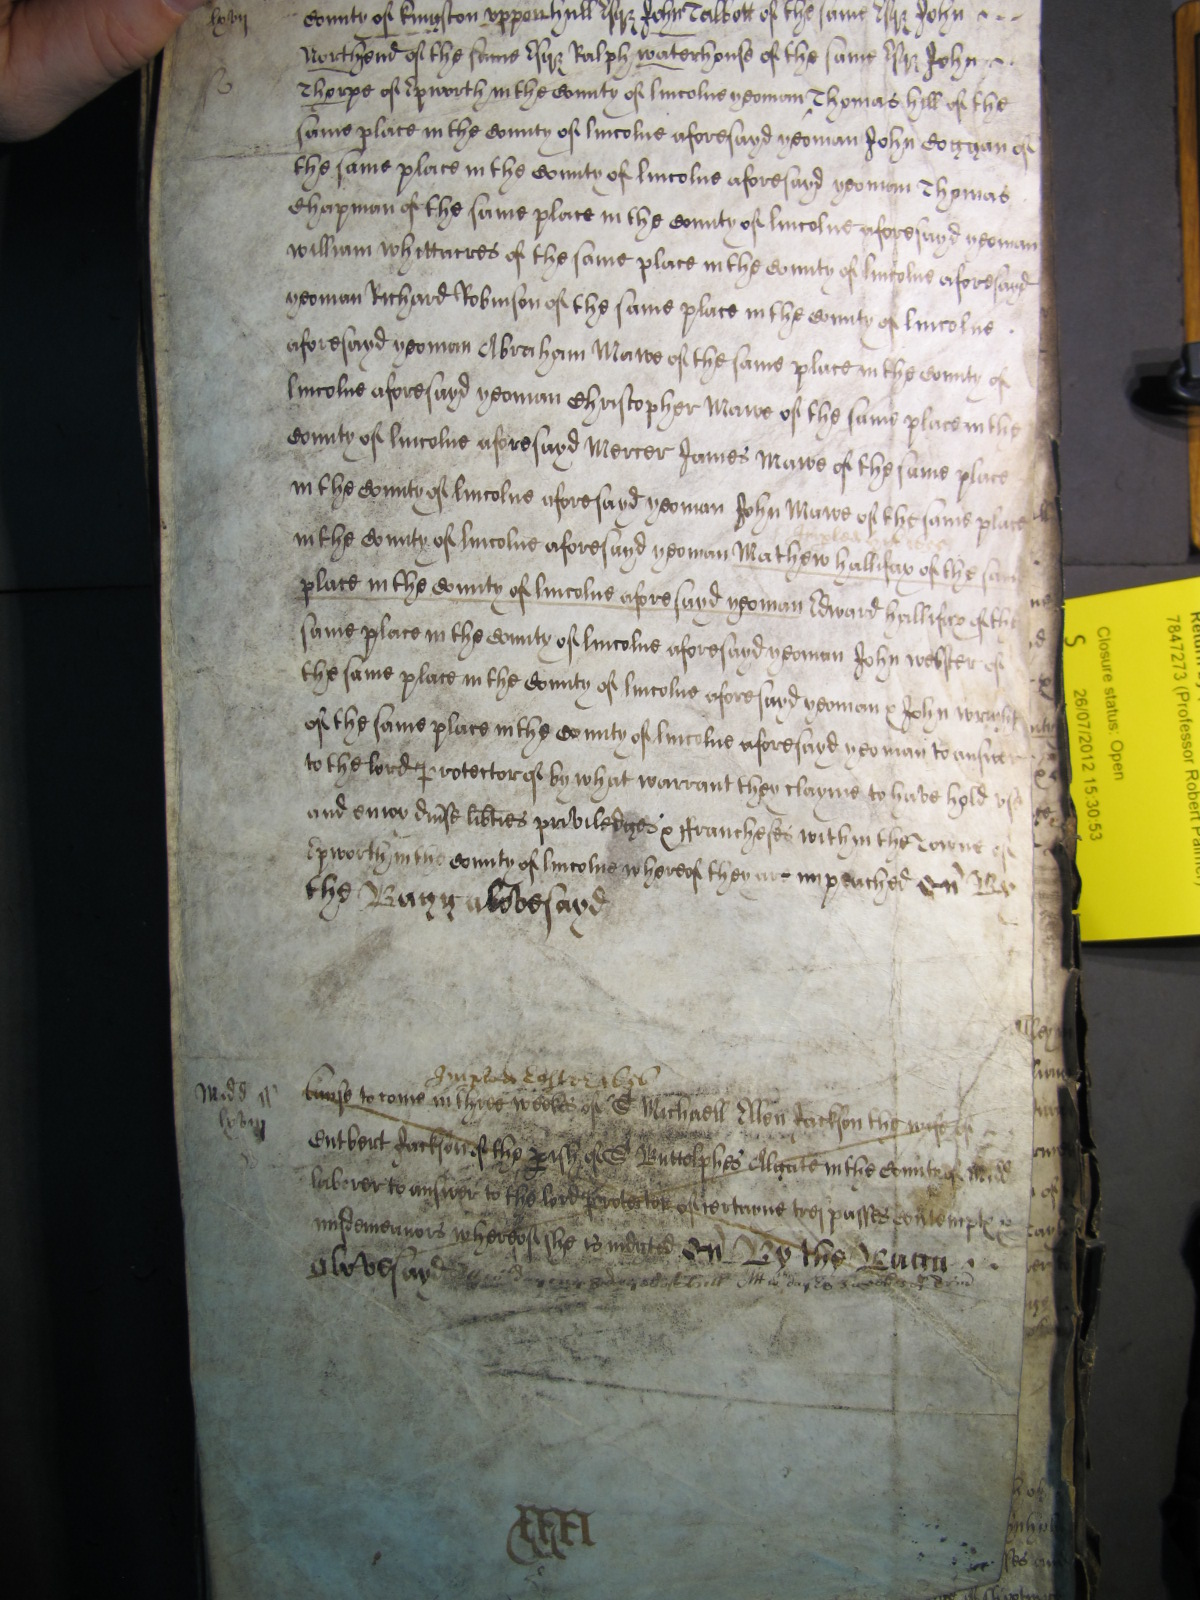 lxvij
County of Kingston vppon Hull Esqr John Talbott of the same Esqr John
Northend of the same Esqr Ralph waterhouse of the same Esqr John
Thorpe of Epworth in the County of lincolne yeoman Thomas hill of the
same place in the County of lincolne aforesayd yeoman John Coggan of
the same place in the County of lincolne aforesayd yeoman Thomas
Chapman of the same place in the County of lincolne aforesayd yeoman
William Whittacres of the same place in the County of lincolne aforesayd
yeoman Richard Robinson of the same place in the County of lincolne
aforesayd yeoman Abraham Mawe of the same place in the County of
lincolne aforesayd yeoman Christopher Mawe of the same place in the
County of lincolne aforesayd Mercer James Mawe of the same place
in the County of lincolne aforesayd yeoman John Mawe of the same place
in the County of lincolne aforesayd yeoman Mathew hallifax of the sam
place in the County of lincolne aforesayd yeoman Edward hallifax of the
same place in the County of lincolne aforesayd yeoman John webster of
the same place in the County of lincolne aforesayd yeoman & John wright
of the same place in the County of lincolne aforesayd yeoman to answer
to the lord Protector of by what warrant they clayme to have hold vse
and enioy diuse libties priviledges & ffrancheses within the Towne of
Epworth in the County of lincolne whereof they are impeached By
the Bagg abovesayd
Midd
lxviij
Cause to come in three weekes of St Michaell Ellen Jackson the wife of
Cutbert Jackson of the pish of St Buttolphes Algate in the County of Midd
laborer to answer to the lord Protector of certayne trespasses contempts &
misdemeanors whereof she is indicted By the Bagg
abovesayd
XXXI
Closure status: Open
26/07/2012 15:30:53
7847273 (Professor Robert Palmer)
S